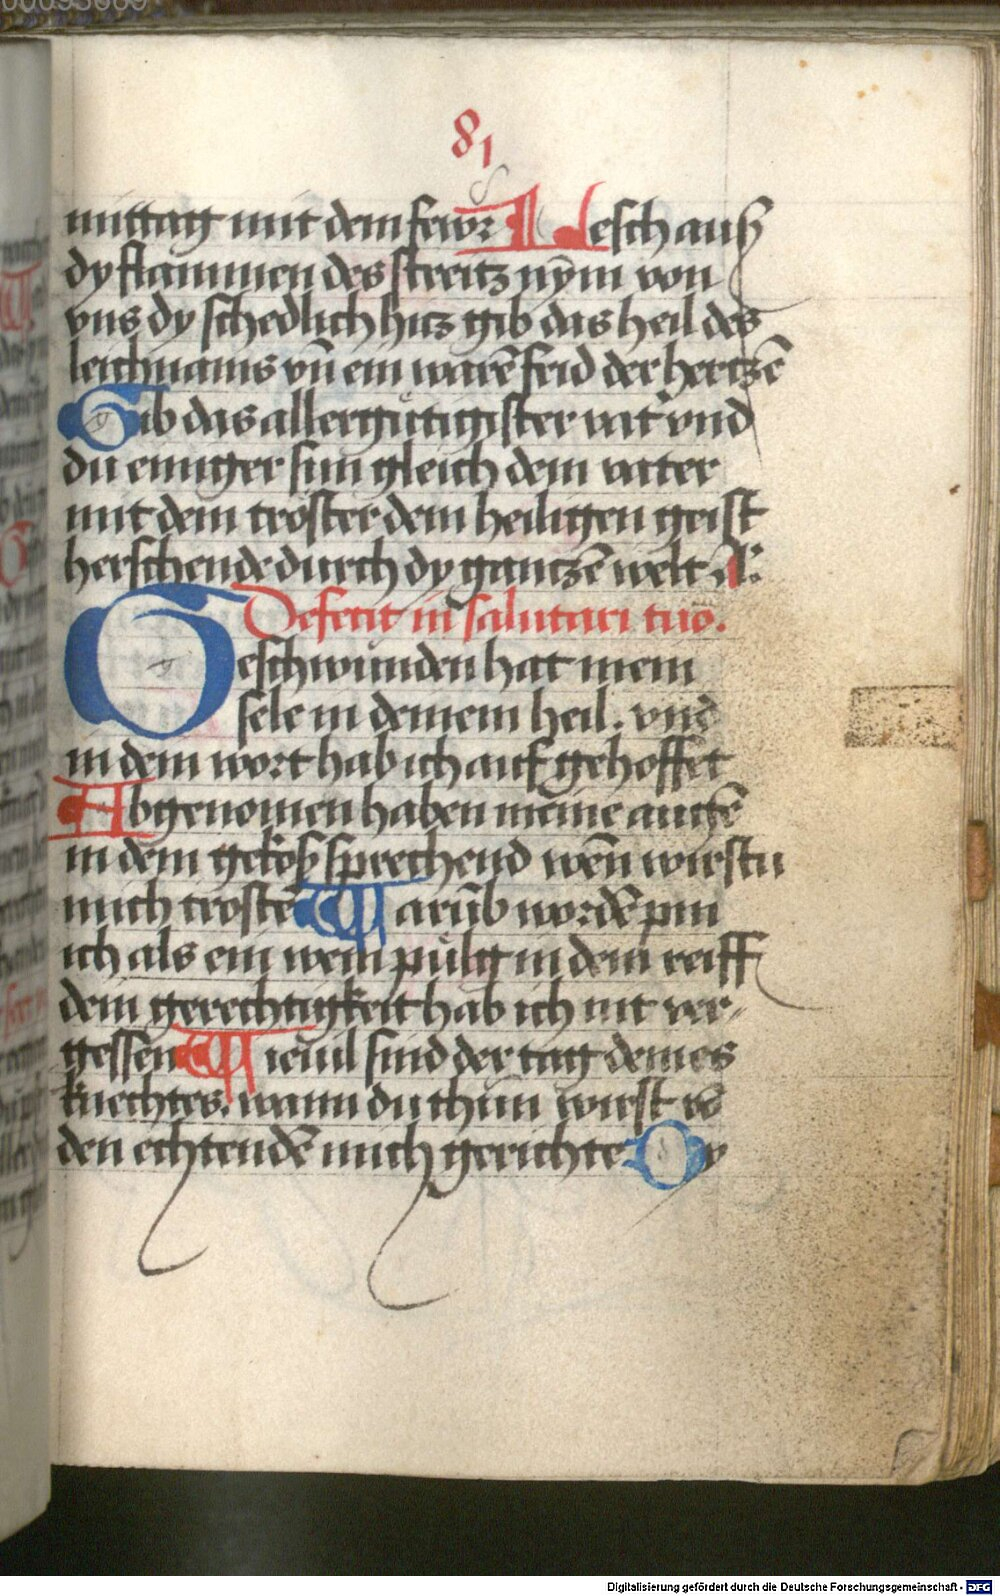 81
mittag mit dem fewr Lesch auß
dy flammen des streitz nym von
vns dy schedlich hitz gib das heil des
leichnams vn̄ ein warē frid der hertzē
Gib das aller gütigister vat' vnd
du einiger sun gleich dem vater
mit dem tröster dem heiligen geist
herschende durch dy gantzē welt A:
Defecit in salutari tuo.
Geschwunden hat mein
sele in deinem heil. vnd
in dem wort hab ich auf gehoffet
Abgenomen haben meine augē
in dem gekoß sprechend wen̄ wirstu
mich trostē Warūb wordē pin
ich als ein wein pulg in dem reiff
dein gerechtigkeit hab ich nit ver-
gessen Wieuil sind der tag deines
knechtes. wann du thun wirst vō
den echtendē mich gerichte Dy
Digitalisierung gefördert durch die Deutsche Forschungsgemeinschaft - DFG